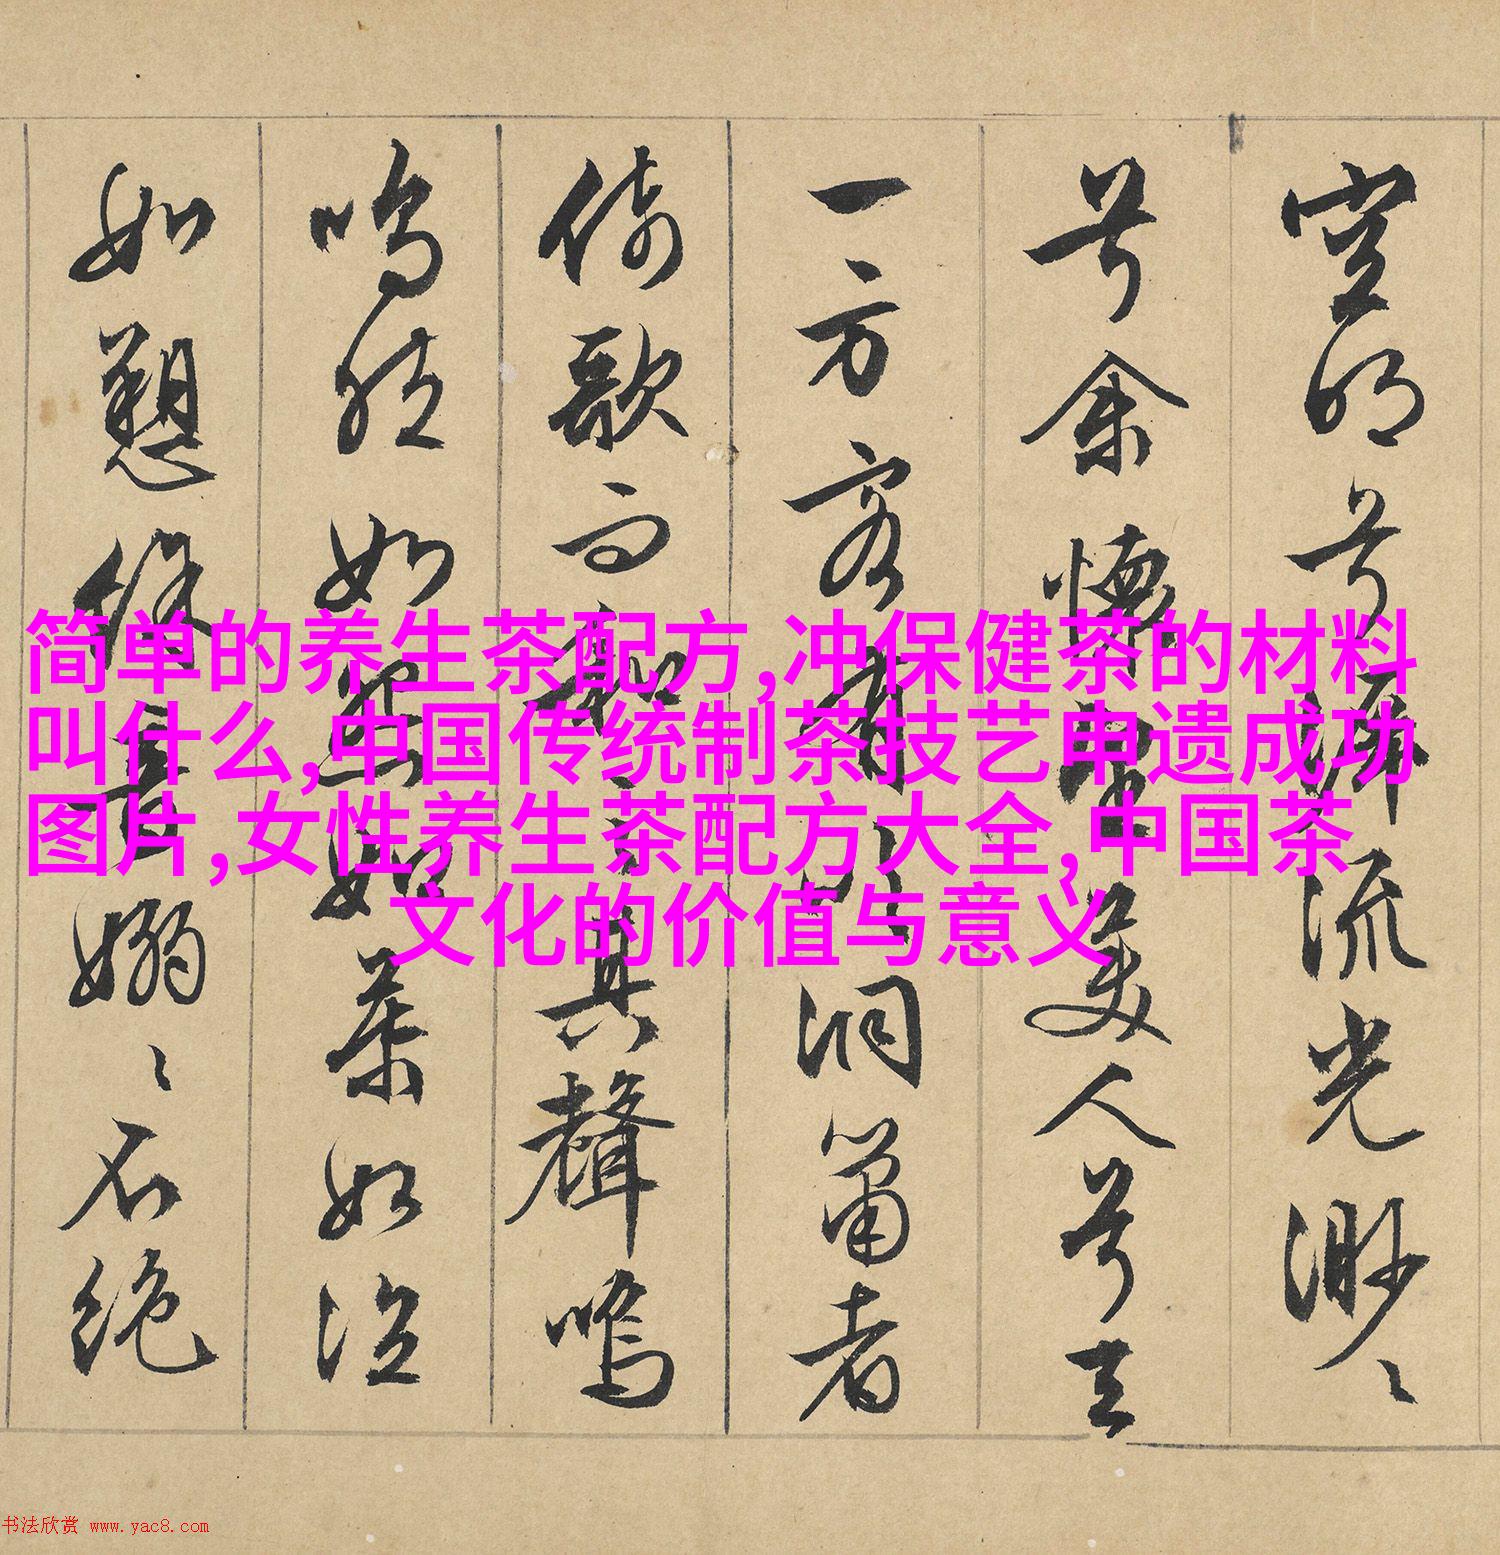 空明兮泝流光渺〻
兮余懷望美人兮天
一方客有吹洞簫者
倚歌而和之其聲嗚
嗚然如怨如慕如泣
如愬餘音嫋〻不絕
简单的养生茶配方,冲保健茶的材料
叫什么,中国传统制茶技艺申遗成功
图片,女性养生茶配方大全,中国茶
文化的价值与意义
书法欣赏 www.yac8.com